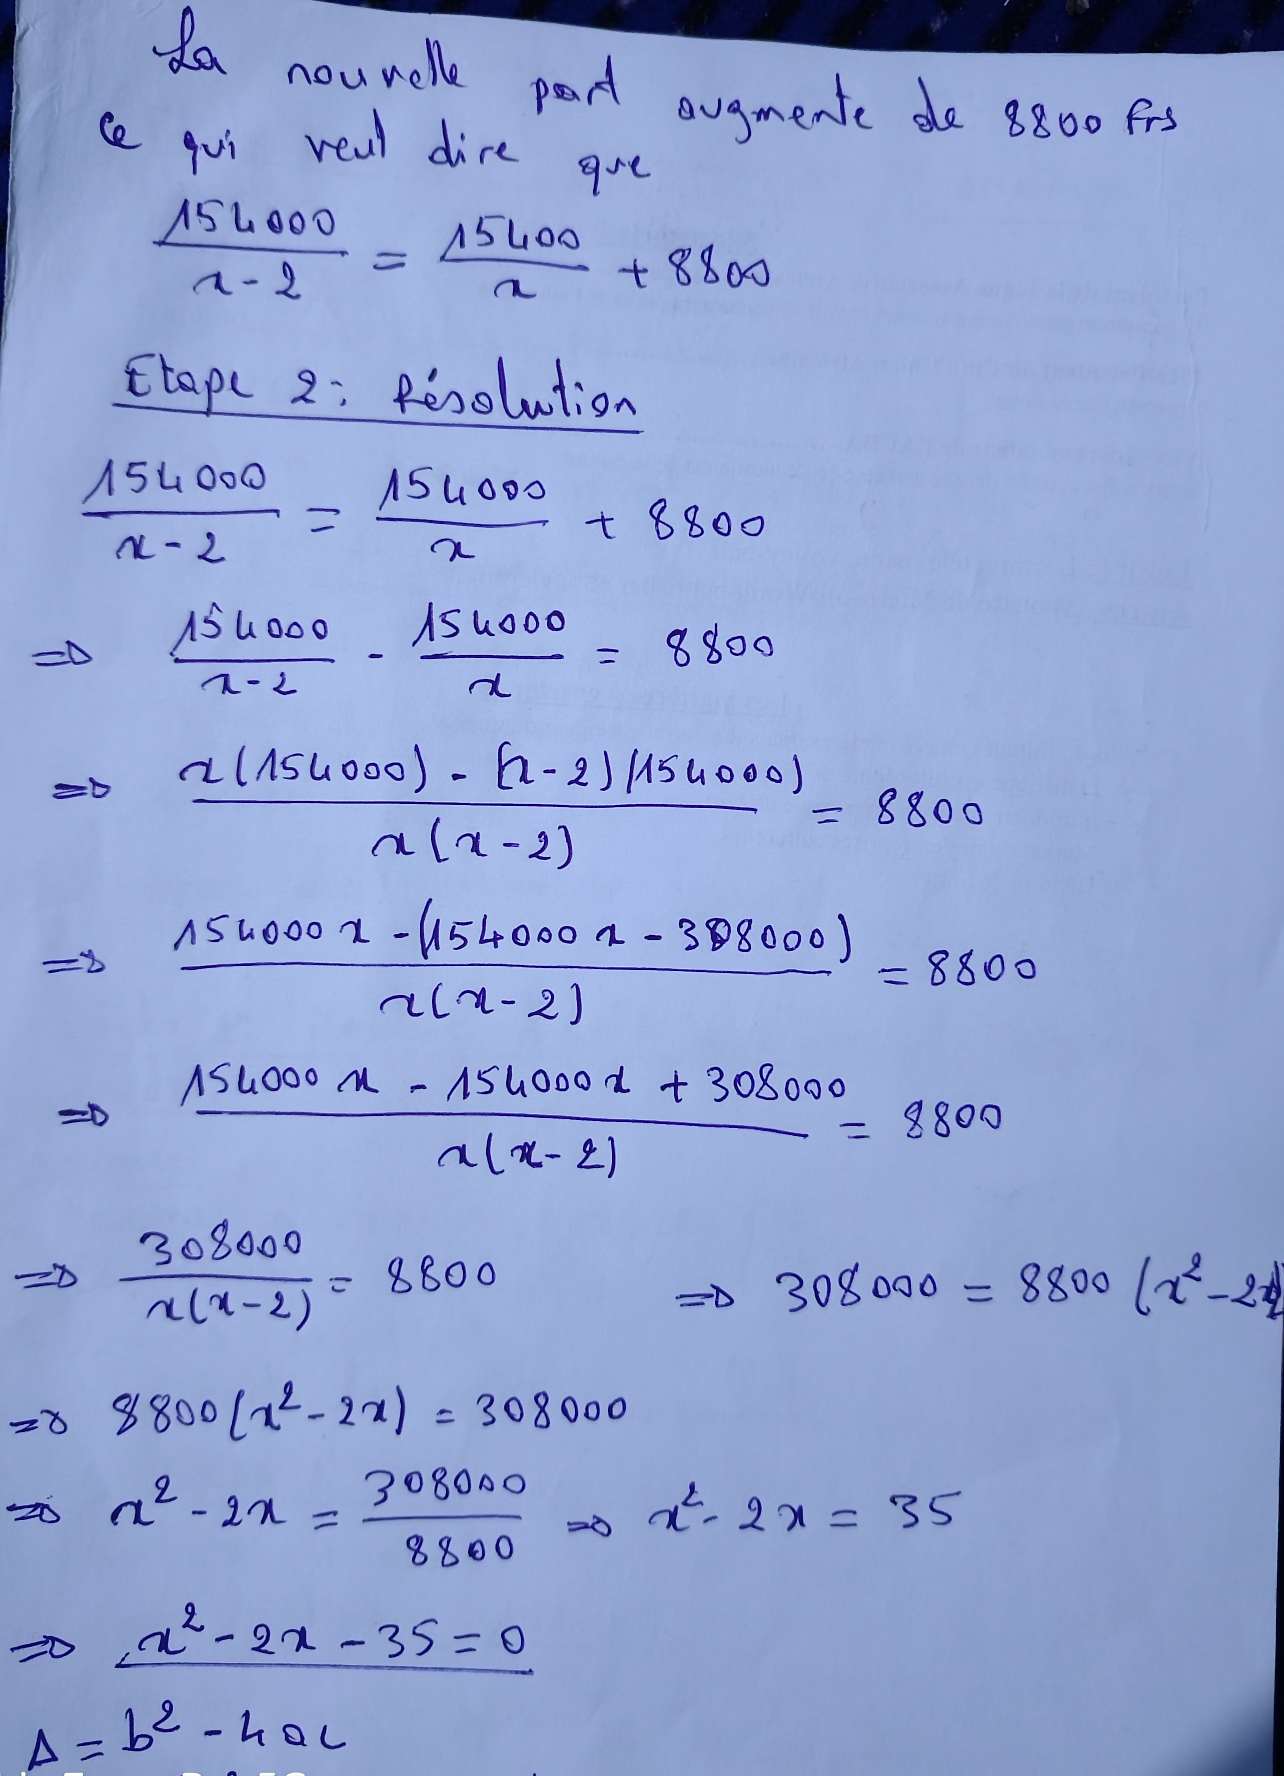 La nouvelle part augmente de 8800 frs
Ce qui veut dire que
154000/(x-2) = 15400/x + 8800
Etape 2: Résolution
154000/(x-2) = 154000/x + 8800
=> 154000/(x-2) - 154000/x = 8800
=> (x(154000) - (x-2)(154000))/(x(x-2)) = 8800
=> (154000x - (154000x - 308000))/(x(x-2)) = 8800
=> (154000x - 154000x + 308000)/(x(x-2)) = 8800
=> 308000/(x(x-2)) = 8800 => 308000 = 8800 (x² - 2x)
=> 8800(x² - 2x) = 308000
=> x² - 2x = 308000/8800 => x² - 2x = 35
=> x² - 2x - 35 = 0
Δ = b² - 4ac